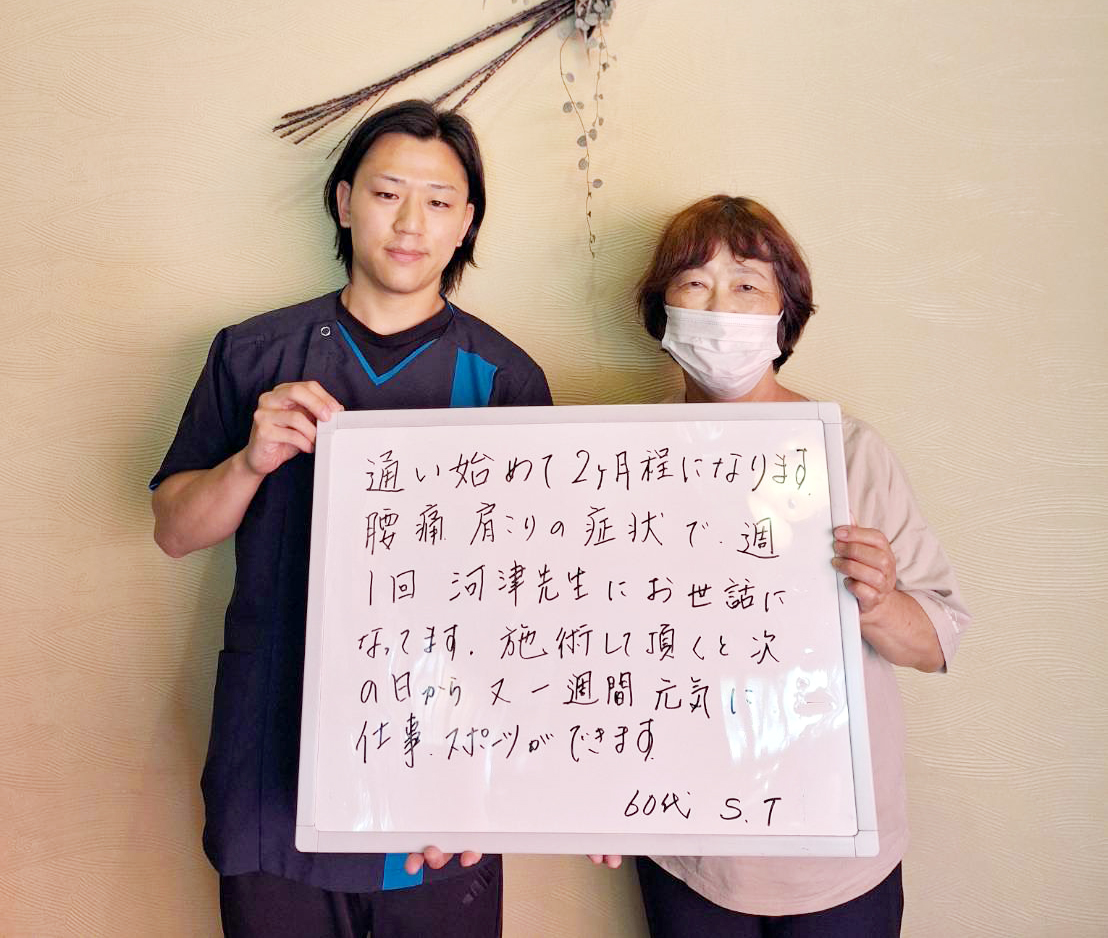 通い始めて2ヶ月程になります。
腰痛 肩こりの症状で、週
1回 河津先生にお世話に
なってます。施術して頂くと次
の日から又一週間元気に
仕事、スポーツができます。
60代 S.T